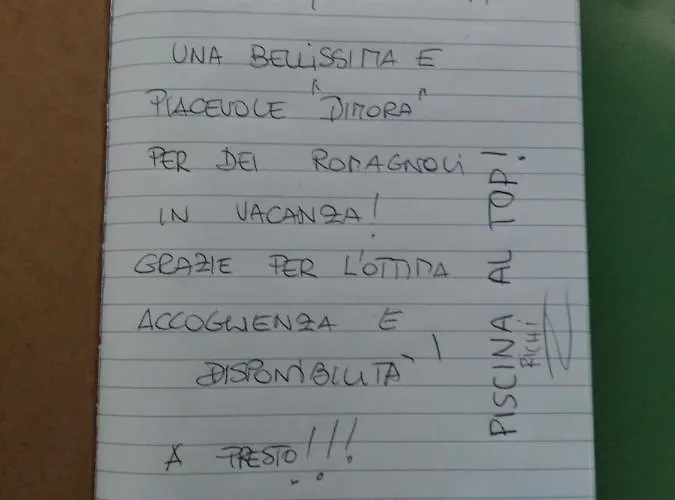 UNA BELLISSIMA E
PIACEVOLE "DIMORA"
PER DEI ROMAGNOLI
IN VACANZA!
GRAZIE PER L'OTTIMA
ACCOGLIENZA E
DISPONIBILITÀ!
A PRESTO!!!
PISCINA AL TOP!
RICHI